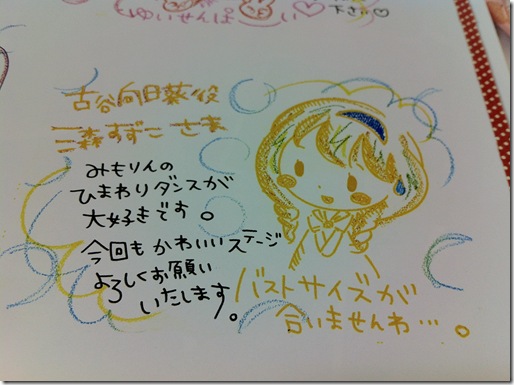 ゆいせんぱ い♡
下さい♡
古谷向日葵役
三森すずこ さま
みもりんの
ひまわりダンスが
大好きです。
今回も かわいいステージ
よろしくお願い
いたします。
バストサイズが
合いませんわ…。